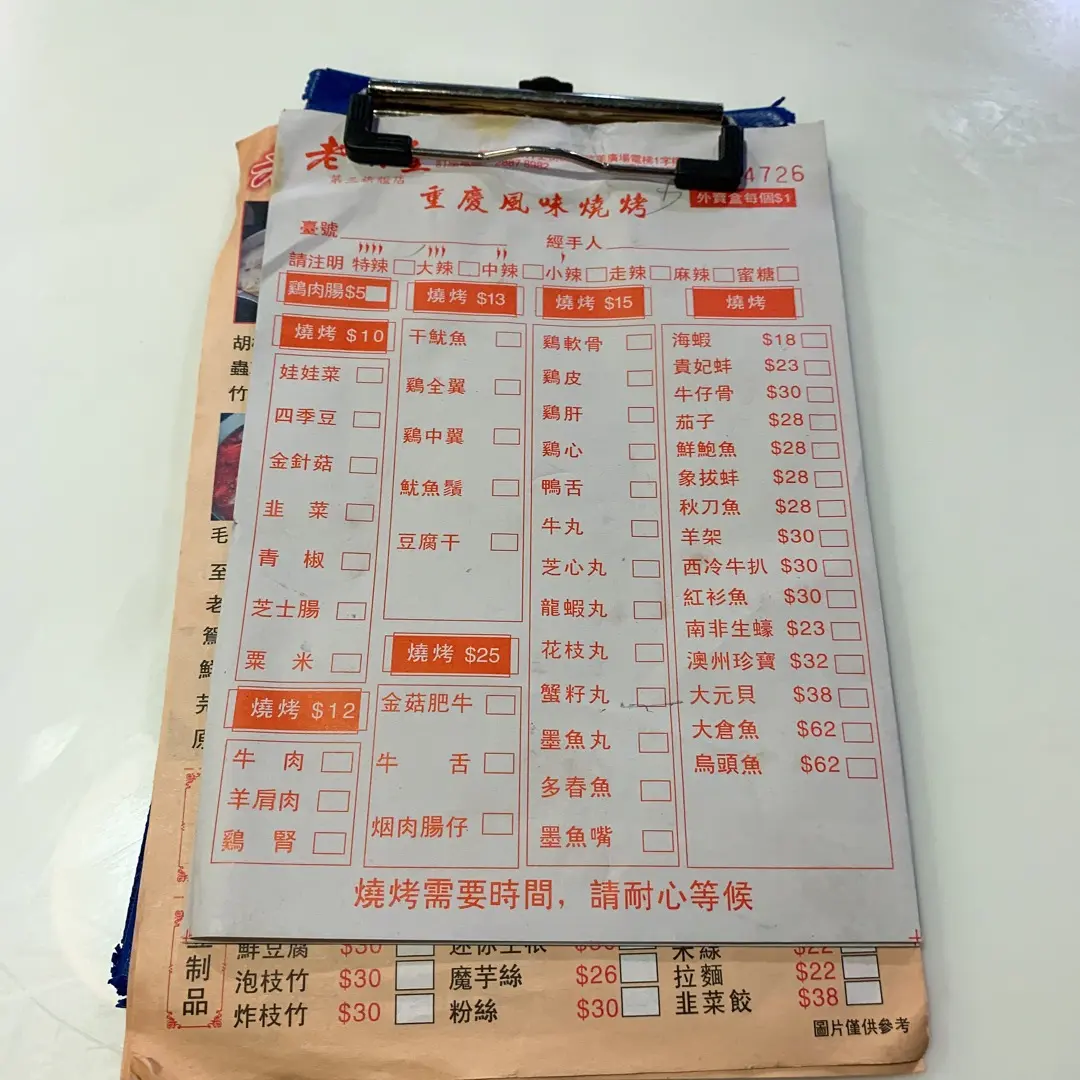 老
第三旗艦店
4726
外賣盒每個$1
重慶風味燒烤
臺號
經手人
請注明 特辣 大辣 中辣 小辣 走辣 麻辣 蜜糖
鷄肉腸$5
燒烤 $10
娃娃菜
四季豆
金針菇
韭菜
青椒
芝士腸
粟米
燒烤 $12
牛肉
羊肩肉
鷄腎
燒烤 $13
干魷魚
鷄全翼
鷄中翼
魷魚鬚
豆腐干
燒烤 $25
金菇肥牛
牛舌
烟肉腸仔
燒烤 $15
鷄軟骨
鷄皮
鷄肝
鷄心
鴨舌
牛丸
芝心丸
龍蝦丸
花枝丸
蟹籽丸
墨魚丸
多春魚
墨魚嘴
燒烤
海蝦 $18
貴妃蚌 $23
牛仔骨 $30
茄子 $28
鮮鮑魚 $28
象拔蚌 $28
秋刀魚 $28
羊架 $30
西冷牛扒 $30
紅衫魚 $30
南非生蠔 $23
澳州珍寶 $32
大元貝 $38
大倉魚 $62
烏頭魚 $62
燒烤需要時間，請耐心等候
制品
鮮豆腐 $30
泡枝竹 $30
炸枝竹 $30
魔芋絲 $26
粉絲 $30
米線 $22
拉麵 $22
韭菜餃 $38
圖片僅供參考